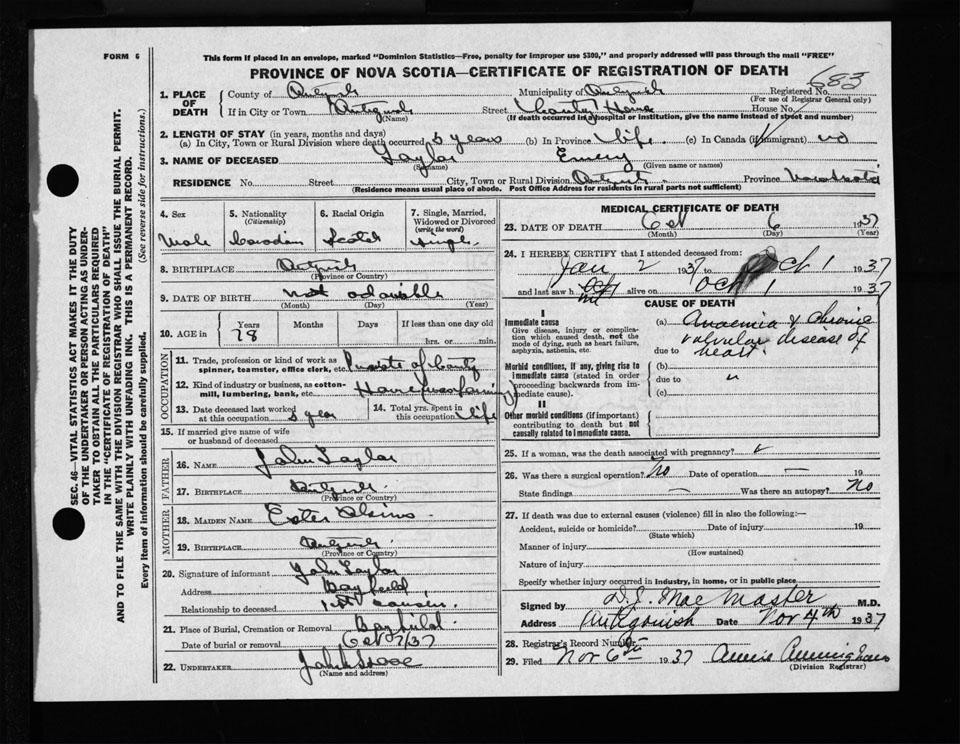 FORM 6
This form if placed in an envelope, marked "Dominion Statistics—Free, penalty for improper use $300," and properly addressed will pass through the mail "FREE"
PROVINCE OF NOVA SCOTIA—CERTIFICATE OF REGISTRATION OF DEATH
683
1. PLACE OF DEATH
County of Antigonish Municipality of Antigonish Registered No.
(For use of Registrar General only)
If in City or Town Antigonish Street County Home House No.
(Name) (If death occurred in a hospital or institution, give the name instead of street and number)
2. LENGTH OF STAY (in years, months and days)
(a) In City, Town or Rural Division where death occurred 5 years (b) In Province life (c) In Canada (if immigrant) no
3. NAME OF DECEASED Taylor Emery
(Surname) (Given name or names)
RESIDENCE No. Street City, Town or Rural Division Antigonish Province Nova Scotia
(Residence means usual place of abode. Post Office Address for residents in rural parts not sufficient)
4. Sex 5. Nationality (Citizenship) 6. Racial Origin 7. Single, Married, Widowed or Divorced (write the word)
Male Canadian Scotch single
8. BIRTHPLACE Antigonish
(Province or Country)
9. DATE OF BIRTH not
(Month) (Day) (Year)
10. AGE in Years Months Days If less than one day
78 hrs. or min.
OCCUPATION
11. Trade, profession or kind of work as spinner, teamster, office clerk, etc. Inmate of County
12. Kind of industry or business, as cotton-mill, lumbering, bank, etc. Home (was farming)
13. Date deceased last worked at this occupation 5 year 14. Total yrs. spent in this occupation life
15. If married give name of wife or husband of deceased
FATHER
16. NAME John Taylor
17. BIRTHPLACE Antigonish
(Province or Country)
MOTHER
18. MAIDEN NAME Ester
19. BIRTHPLACE Antigonish
(Province or Country)
20. Signature of informant John Taylor
Address Bayfield
Relationship to deceased 1st cousin.
21. Place of Burial, Cremation or Removal Bayfield
Date of burial or removal Oct 7/37
22. UNDERTAKER John
(Name and address)
MEDICAL CERTIFICATE OF DEATH
23. DATE OF DEATH Oct 6 1937
(Month) (Day) (Year)
24. I HEREBY CERTIFY that I attended deceased from:
Jan 2 1937 to Oct 1 1937
and last saw h im alive on Oct 1 1937
CAUSE OF DEATH
I
Immediate cause
Give disease, injury or complication which caused death, not the mode of dying, such as heart failure, asphyxia, asthenia, etc.
(a) Anaemia & Chronic
valvular disease of
due to heart.
Morbid conditions, if any, giving rise to immediate cause (stated in order proceeding backwards from immediate cause).
(b)
due to "
(c)
II
Other morbid conditions (if important) contributing to death but not causally related to immediate cause.
25. If a woman, was the death associated with pregnancy?
26. Was there a surgical operation? No Date of operation — 19
State findings — Was there an autopsy? No
27. If death was due to external causes (violence) fill in also the following:—
Accident, suicide or homicide? Date of injury 19
(State which)
Manner of injury
(How sustained)
Nature of injury
Specify whether injury occurred in industry, in home, or in public place
Signed by D.J. MacMaster M.D.
Address Antigonish Date Nov 4th 1937
28. Registrar's Record Number
29. Filed Nov 6th 1937 Annie Cunningham
(Division Registrar)
SEC. 46—VITAL STATISTICS ACT MAKES IT THE DUTY
OF THE UNDERTAKER OR PERSON ACTING AS UNDER-
TAKER TO OBTAIN ALL THE PARTICULARS REQUIRED
IN THE "CERTIFICATE OF DEATH"
AND TO FILE THE SAME WITH THE DIVISION REGISTRAR WHO SHALL ISSUE THE BURIAL PERMIT.
WRITE PLAINLY WITH UNFADING INK. THIS IS A PERMANENT RECORD.
Every item of information should be carefully supplied. (See reverse side for instructions.)